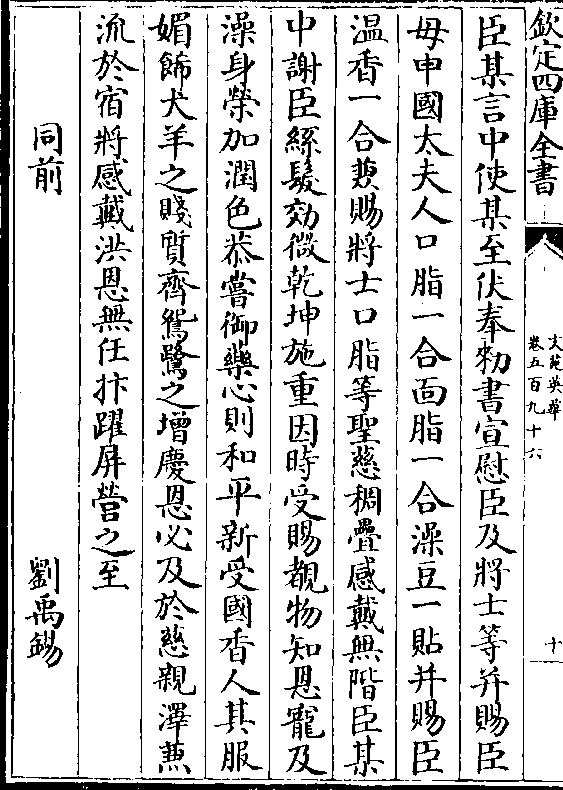 欽定四庫全書
文苑英華
卷五百九十六
十
臣某言中使某至伏奉勑書宣慰臣及將士等并賜臣
母申國太夫人口脂一合面脂一合澡豆一貼并賜臣
温香一合兼賜將士口脂等聖慈稠疊感戴無階臣某
中謝臣絲髮効微乾坤施重因時受賜覩物知恩寵及
澡身榮加潤色恭嘗御藥心則和平新受國香人其服
媚飾犬羊之賤質齊鴛鷺之增慶恩必及於慈親澤兼
流於宿將感戴洪恩無任抃躍屏營之至
同前 劉禹錫